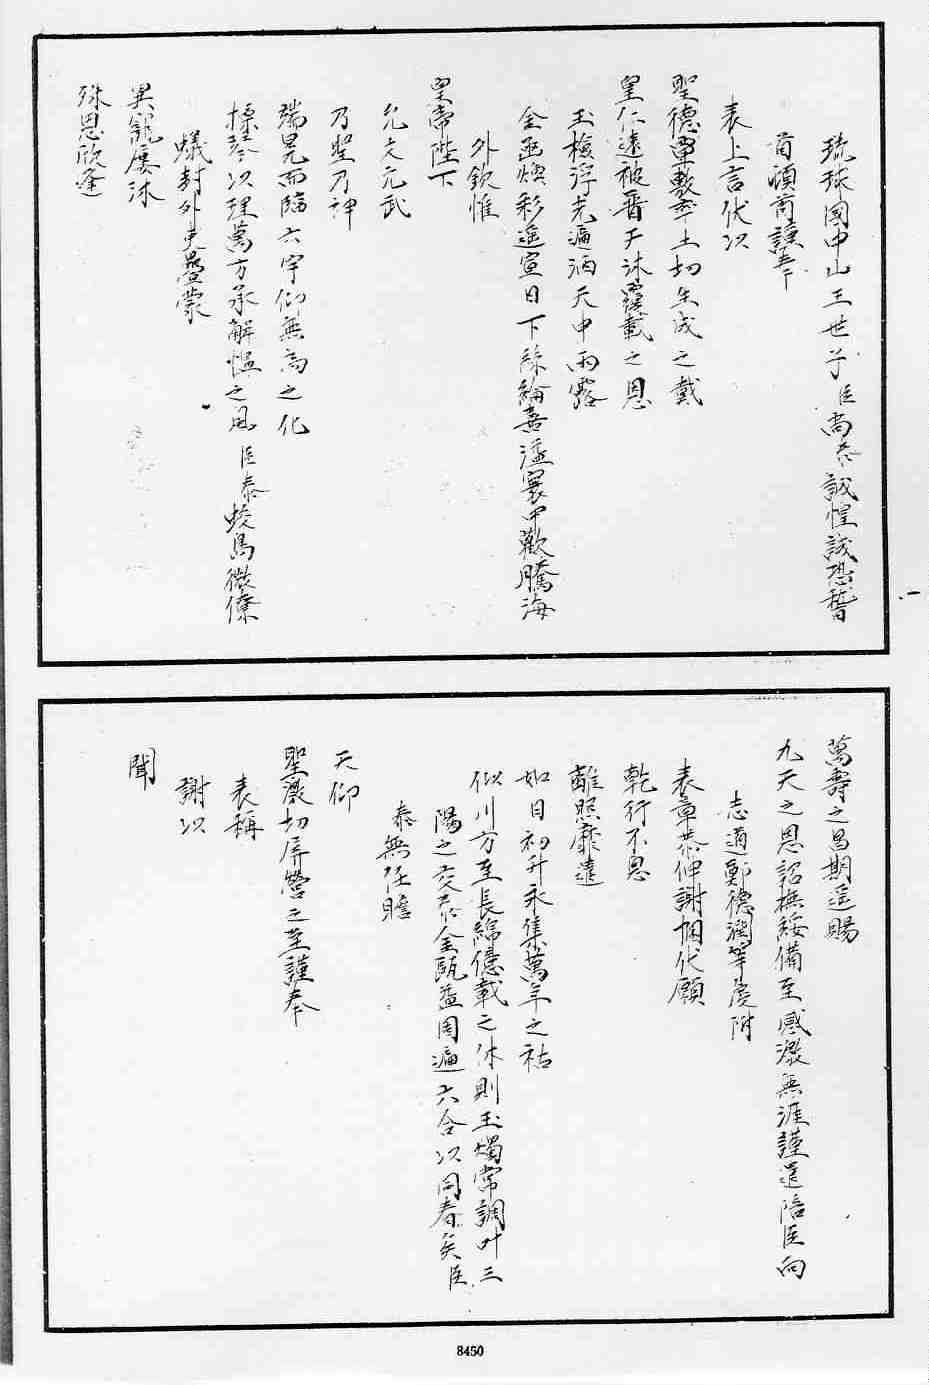 琉球國中山王世子臣尚泰誠惶誠恐稽
首頓首謹奉
表上言伏以
聖德覃敷率土切生成之戴
皇仁遠被普天沐覆載之恩
玉檢浮光遍洒天中雨露
金函煥彩遙宣日下絲綸喜溢寰中歡騰海
外欽惟
皇帝陛下
允文允武
乃聖乃神
端冕而臨六宇仰無為之化
撫琴以理萬方承解慍之風臣泰蛟島微僚
蟻封外吏疊蒙
異寵屢沐
殊恩欣逢
萬壽之昌期遥賜
九天之恩詔撫綏備至感激無涯謹遣陪臣向
志道鄭德潤等虔附
表章恭伸謝悃伏願
乾行不息
離照靡遺
如日初升永集萬年之祜
似川方至長綿億載之休則玉燭常調叶三
陽之交泰金甌益固遍六合以同春矣臣
泰無任瞻
天仰
聖激切屏營之至謹奉
表稱
謝以
聞
8450